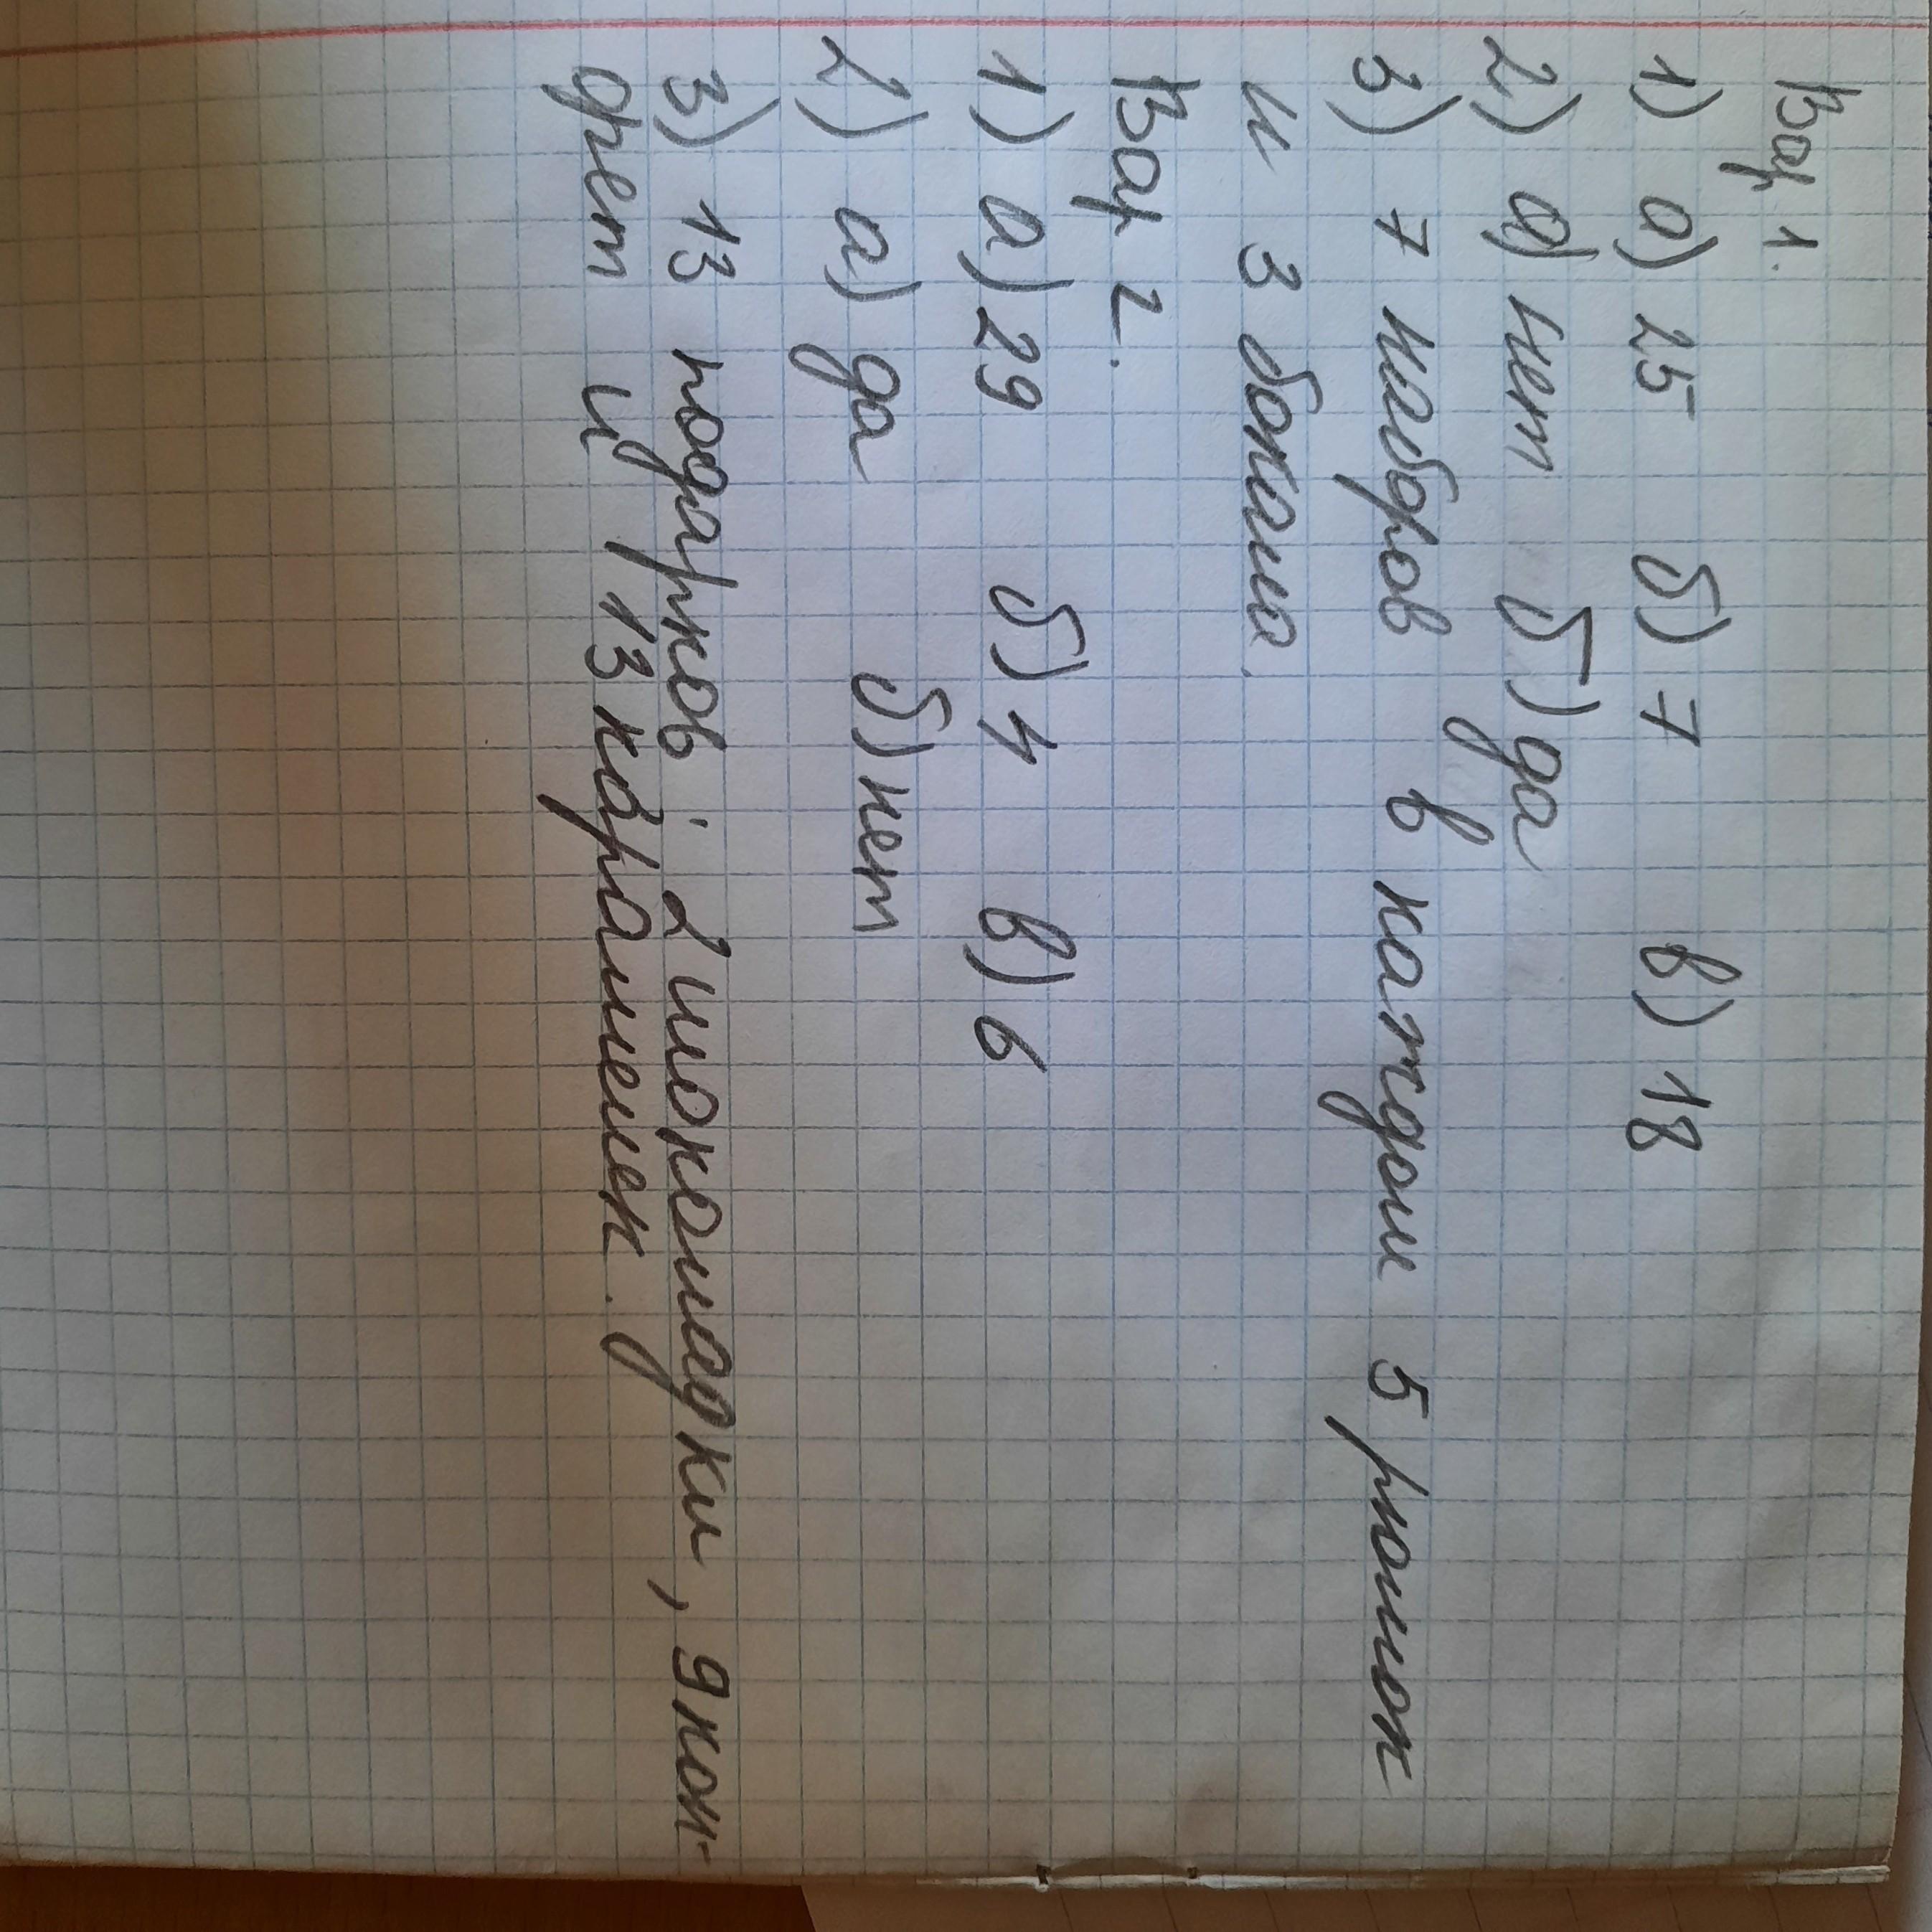 Вар 1.
1) а) 25 б) 7 в) 18
2) а) нет б) да
3) 7 наборов в каждом 5 рюмок
и 3 бокала.
Вар 2.
1) а) 29 б) 4 в) 6
2) а) да б) нет
3) 13 подарков: 2 шоколадки, 9 кон-
фет и 13 карамелек.